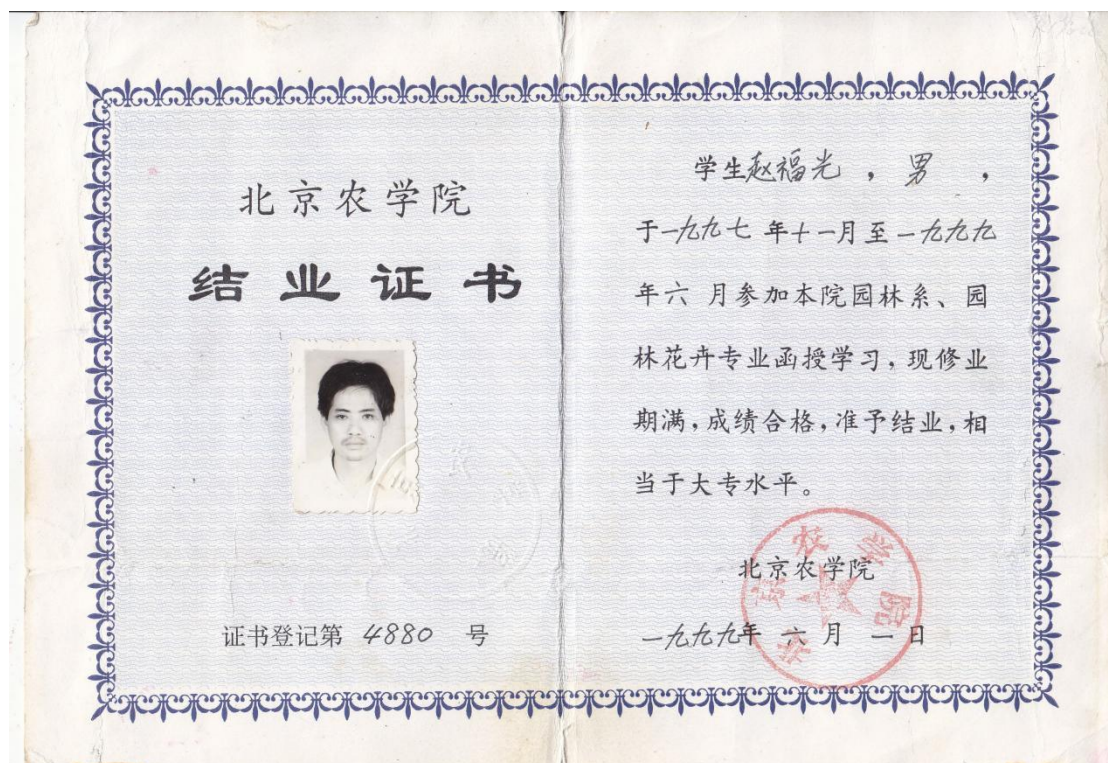 北京农学院
结业证书
证书登记第 4880 号
学生赵福光，男，
于一九九七年十一月至一九九九
年六月参加本院园林系、园
林花卉专业函授学习，现修业
期满，成绩合格，准予结业，相
当于大专水平。
北京农学院
一九九九年六月一日